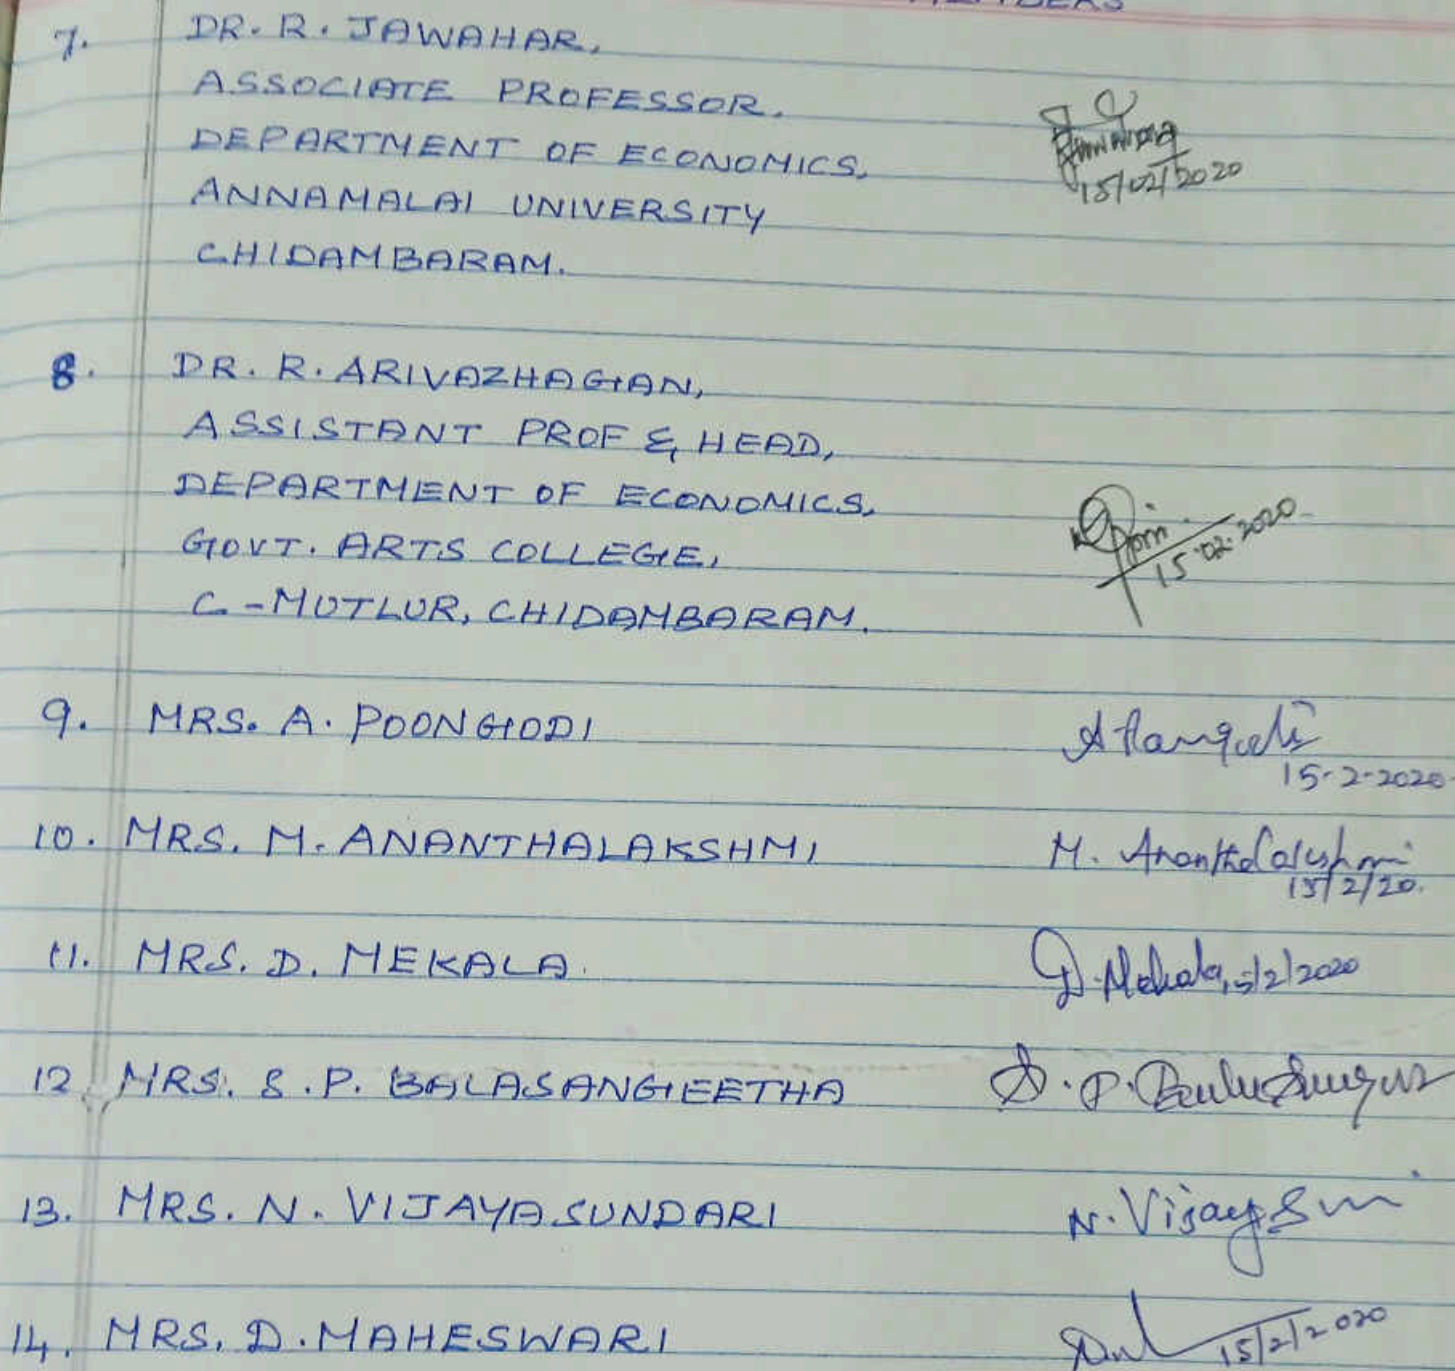 MEMBERS
7. DR. R. JAWAHAR,
ASSOCIATE PROFESSOR,
DEPARTMENT OF ECONOMICS,
15/02/2020
ANNAMALAI UNIVERSITY
CHIDAMBARAM.
8. DR. R. ARIVAZHAGAN,
ASSISTANT PROF & HEAD,
DEPARTMENT OF ECONOMICS,
15.02.2020
GOVT. ARTS COLLEGE,
C-MUTLUR, CHIDAMBARAM.
9. MRS. A. POONGODI
15-2-2020
10. MRS. M. ANANTHALAKSHMI M. Ananthalakshmi
15/2/20.
11. MRS. D. MEKALA. D. Mekala 15/2/2020
12. MRS. S.P. BALASANGEETHA S.P.
13. MRS. N. VIJAYASUNDARI N.
14. MRS. D. MAHESWARI 15/2/2020